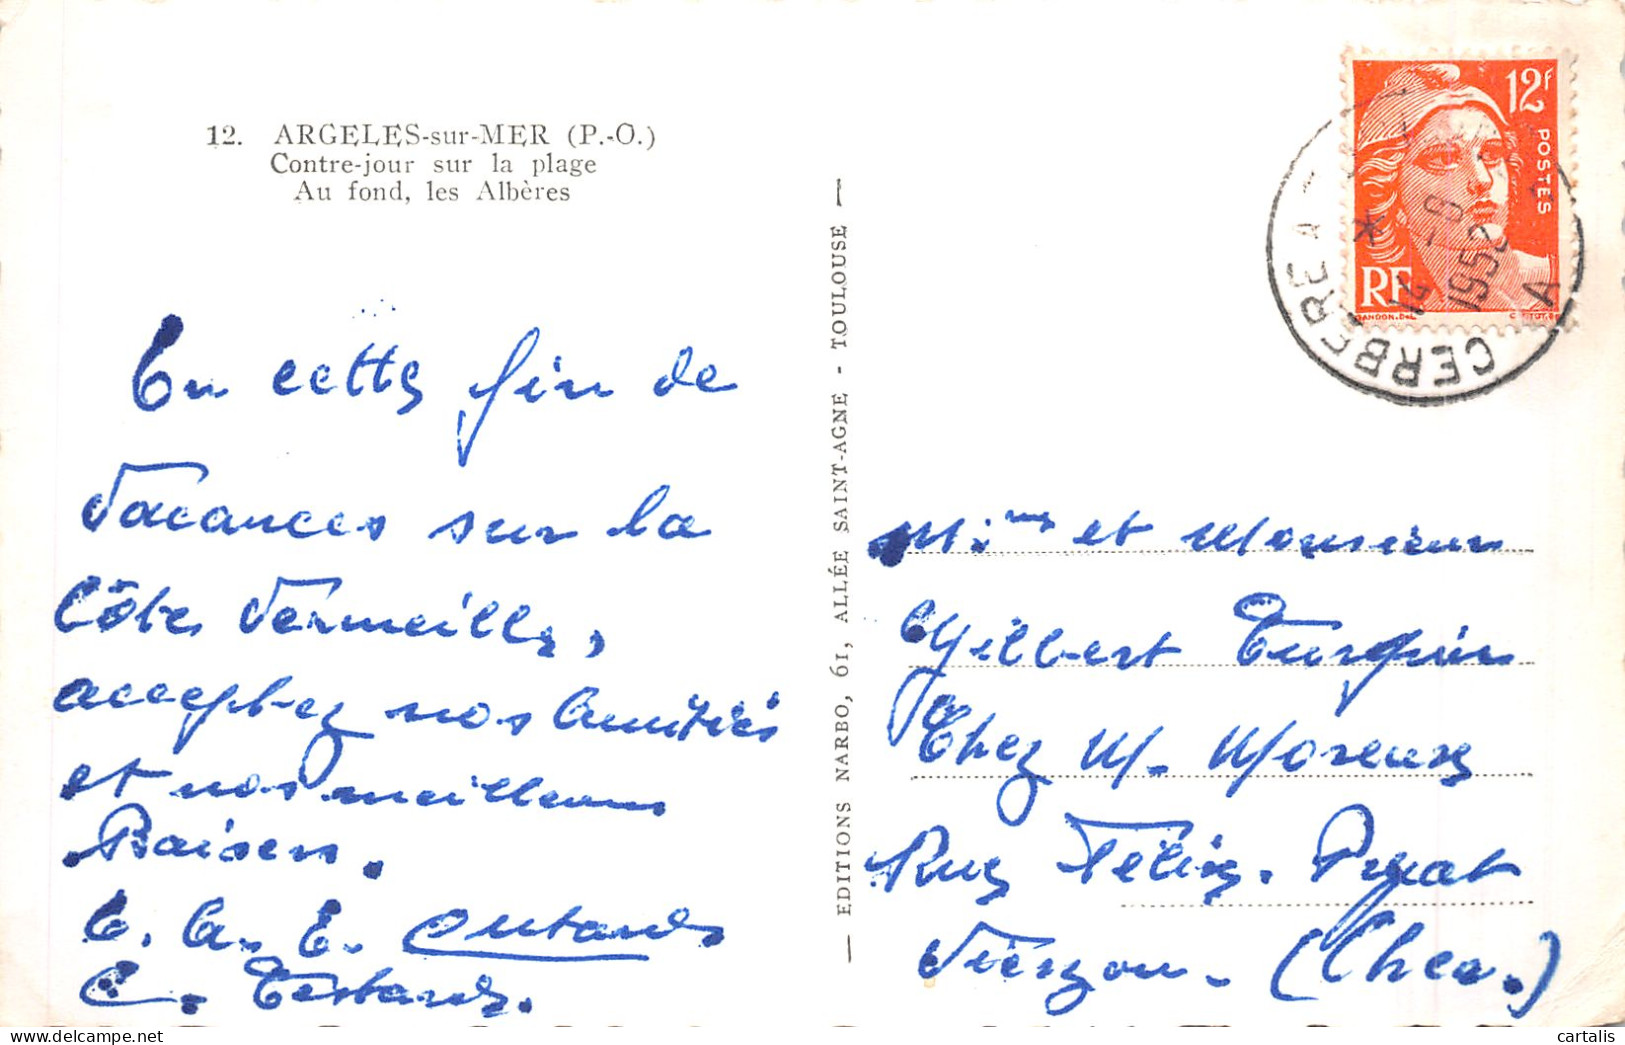 12. ARGELES-sur-MER (P.-O.)
Contre-jour sur la plage
Au fond, les Albères
En cette fin de
vacances sur la
Côte Vermeille,
acceptez nos Amitiés
et nos meilleurs
Baisers.
E. A. E.
C.
— EDITIONS NARBO, 61, ALLÉE SAINT-AGNE - TOULOUSE —
12F
POSTES
RF
GANDON.DEL
CERBERE
1952
Mme et Monsieur
Gilbert Turpin
Chez M. Moreux
Rue Félix. Pyat
Vierzon. (Cher.)
cartalis
www.delcampe.net